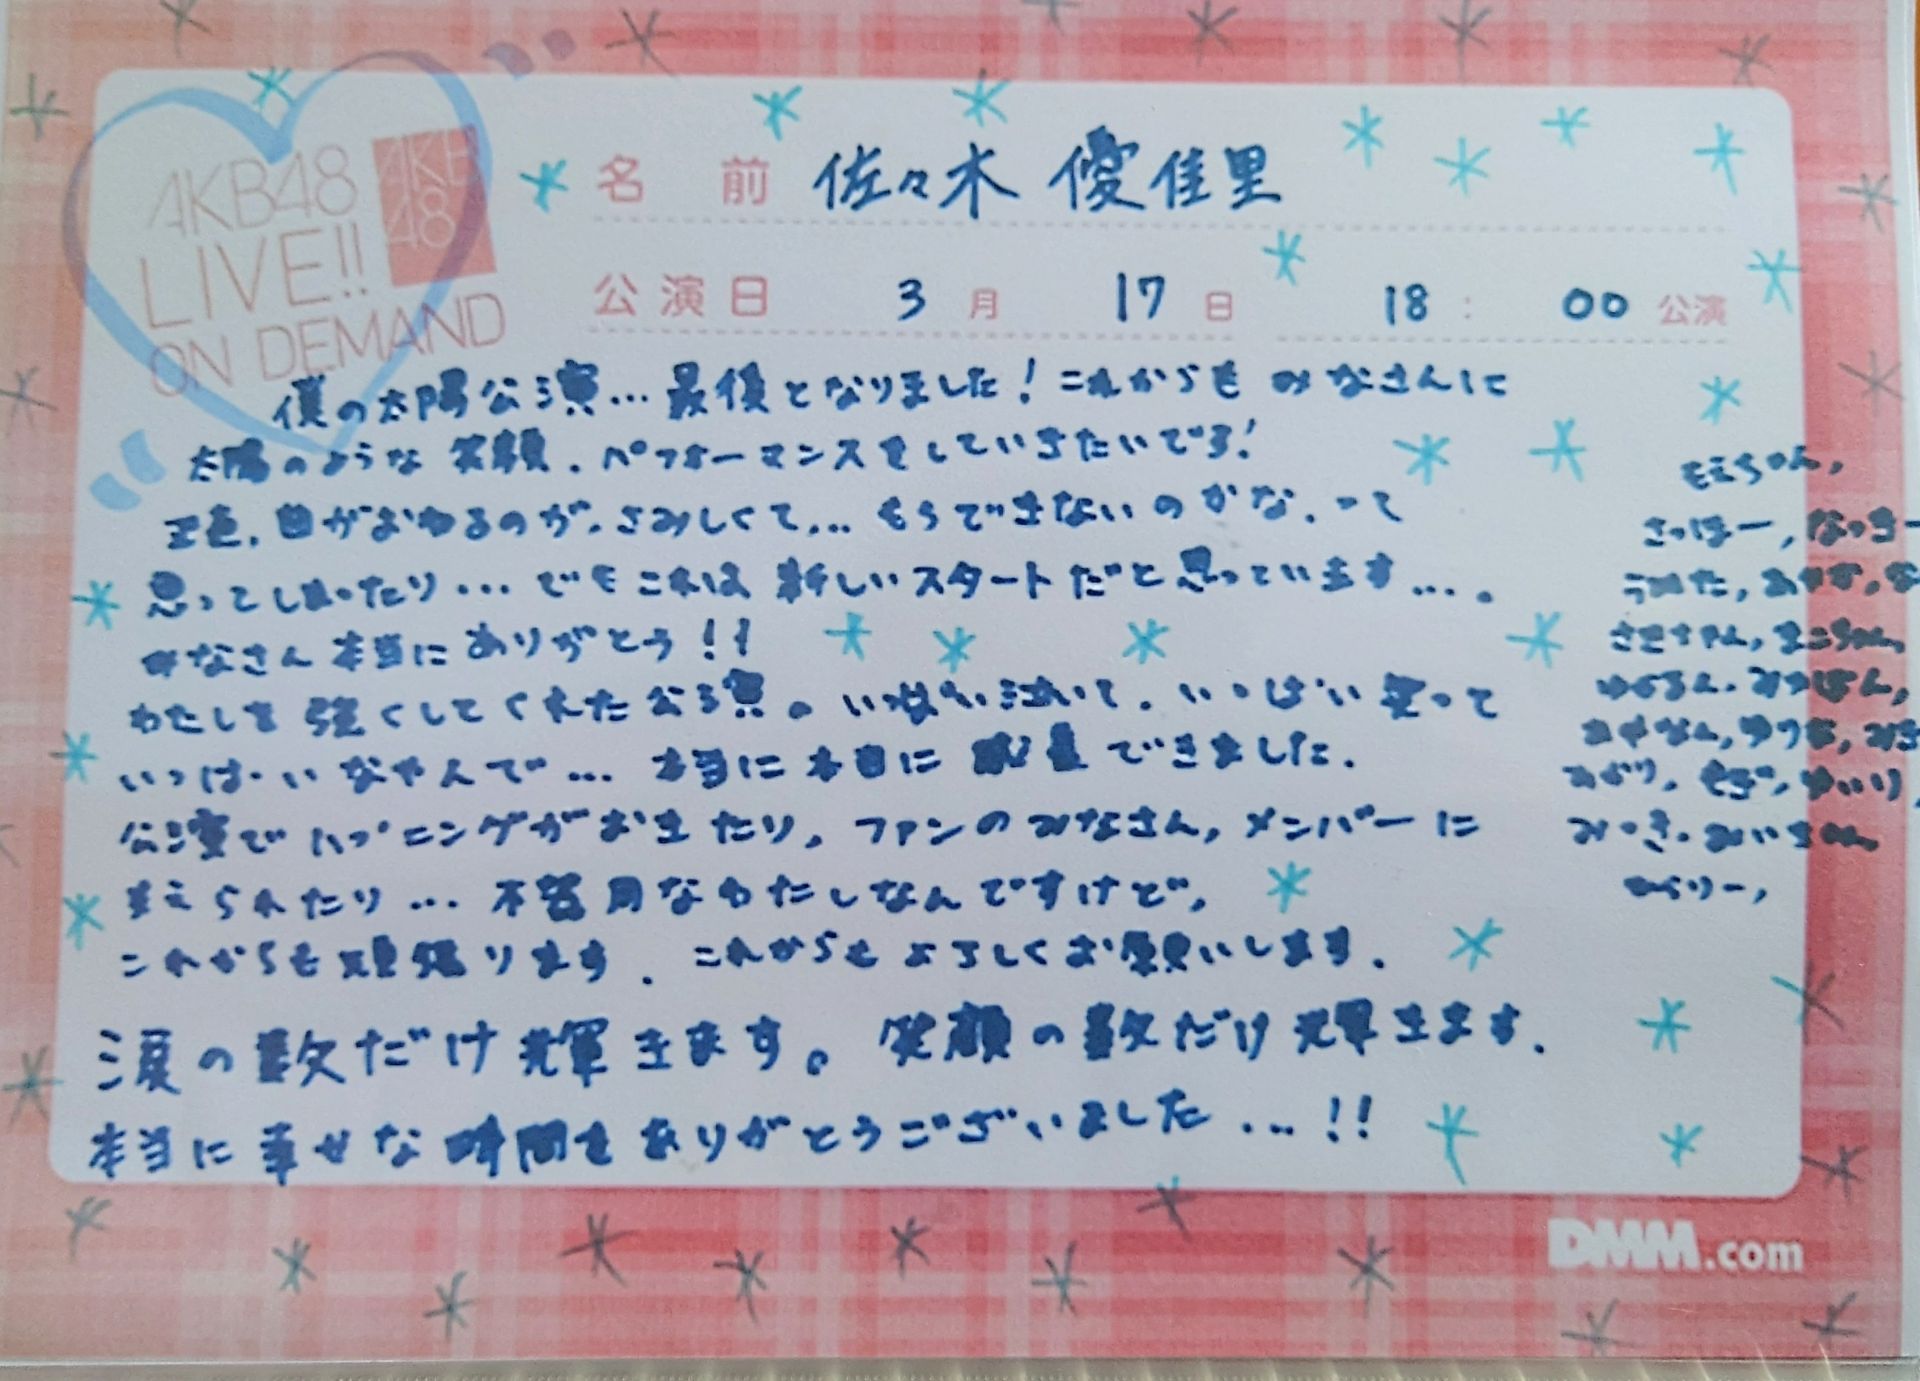 AKB48
LIVE!!
ON DEMAND
AKB
48
名前 佐々木 優佳里
公演日 3月 17日 18:00公演
僕の太陽公演…最後となりました!これからもみなさんに
太陽のような笑顔、パフォーマンスをしていきたいです!
正直、曲がおわるのが、さみしくて…もうできないのかな、って
思ってしまったり…でもこれは新しいスタートだと思っています…。
みなさん本当にありがとう!!
わたしを強くしてくれた公演。いっぱい泣いて、いっぱい笑って
いっぱいなやんで…本当に本当に成長できました。
公演でハプニングがおきたり、ファンのみなさん、メンバーに
支えられたり…不器用なわたしなんですけど、
これからも頑張ります。これからもよろしくお願いします。
涙の数だけ輝きます。笑顔の数だけ輝きます。
本当に幸せな時間をありがとうございました…!!
もえちゃん,
さっほー,なっきー
うめた,あやか,
さきちゃん,まこちゃん,
みつほん,
あやなん,ゆうな,
ゆいり,
みっき,みいちゃん,
DMM.com